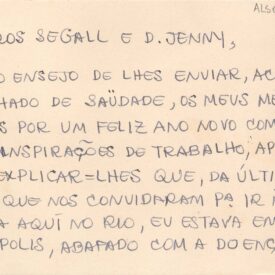 ALSG
ROS SEGALL E D. JENNY,
O ENSEJO DE LHES ENVIAR, AC
HADO DE SAÜDADE, OS MEUS ME
S POR UM FELIZ ANO NOVO COM
INSPIRAÇÕES DE TRABALHO, AP
EXPLICAR=LHES QUE, DA ÚLTI
QUE NOS CONVIDARAM PA IR N
A AQUÍ NO RIO, EU ESTAVA EM
POLIS, ABAFADO COM A DOENÇ